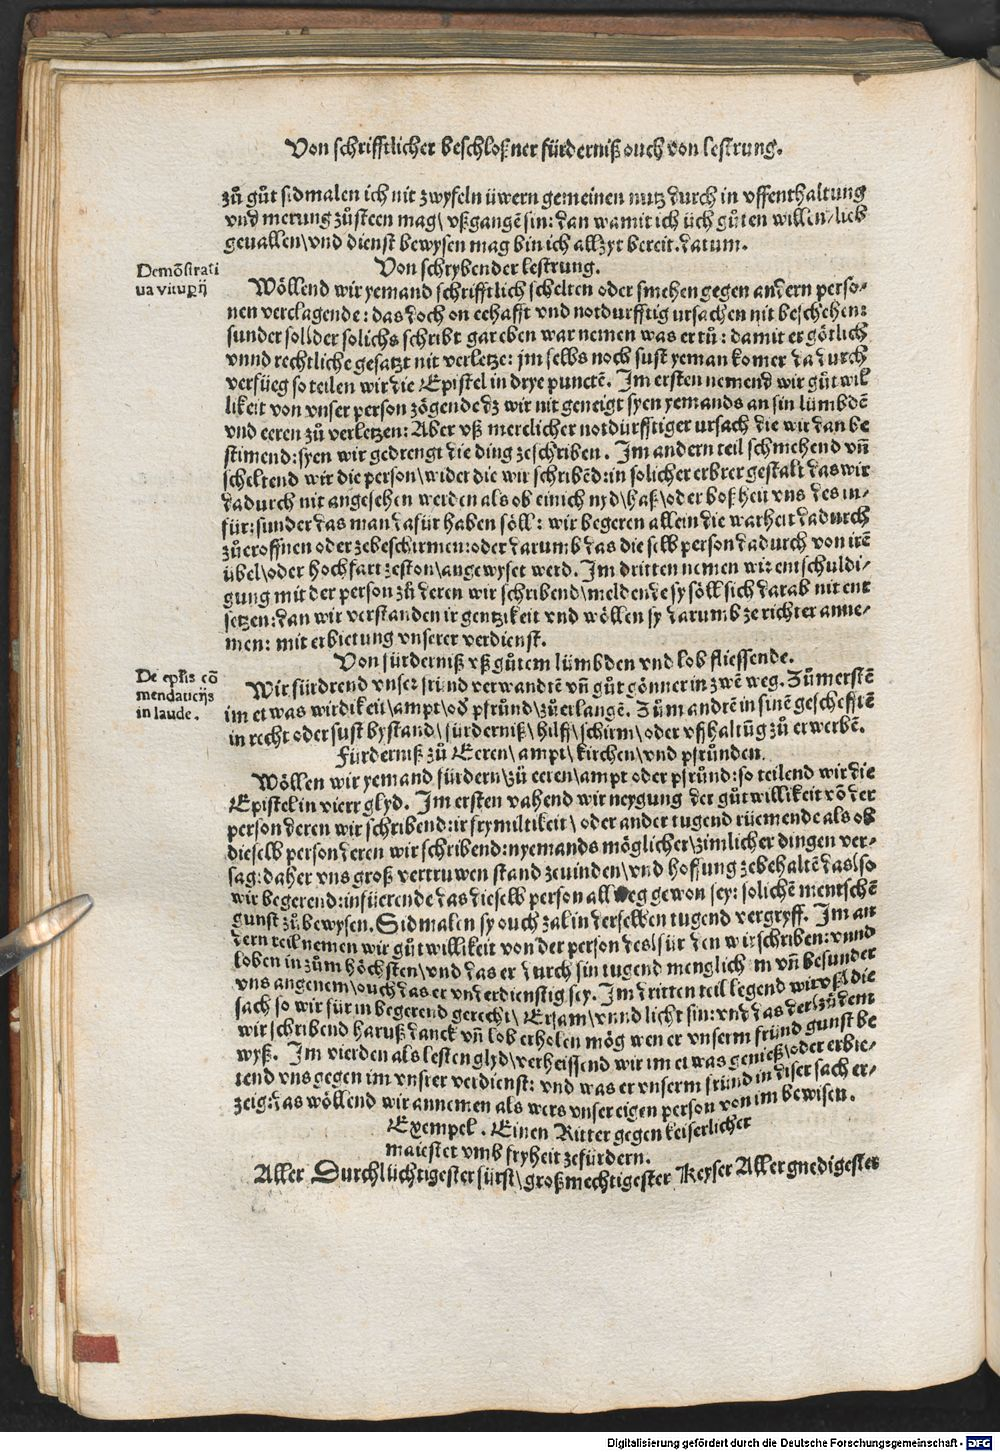 Von schrifftlicher beschloßner fürderniß ouch von lestrung.
zů gůt sidmalen ich nit zwyfeln üwern gemeinen nutz durch in vffenthaltung
vnd merung zůsteen mag\ vßgangē sin: dan wamit ich üch gůten willen/ lieb
geuallen\ vnd dienst bewysen mag bin ich allzyt bereit. datum.
Von schrybender lestrung.
Demōstrati
ua vitup̄ij
Wöllend wir yemand schrifftlich schelten oder smehen gegen andern perso-
nen verclagende: das doch on eehafft vnd notdurfftig vrsachen nit beschehen:
sunder soll der solichs schribt gar eben war nemen was er tů: damit er götlich
vnnd rechtliche gesatzt nit verletze: jm selbs noch sust yeman komer dadurch
verfüeg so teilen wir die Epistel in drye punctē. Im ersten nemend wir gůt wil
likeit von vnser person zögende dz wir nit geneigt syen yemands an sin lümbdē
vnd eeren zů verletzen: Aber vß merclicher notdurfftiger ursach die wir dan be
stimend: syen wir gedrengt die ding zeschriben. Im andern teil schmehend vn̄
scheltend wir die person\ wider die wir schribēd: in solicher erbrer gestalt das wir
dadurch nit angesehen werden als ob einich nyd\ haß\ oder boßheit vns des in-
für: sunder das man dafür haben söll: wir begeren allein die warheit dadurch
zůeroffnen oder zebeschirmen: oder darumb das die selb person dadurch von irē
übel\ oder hochfart zeston\ angewyset werd. Im dritten nemen wir entschuldi-
gung mit der person zů deren wir schribend\ meldende sy söll sich darab nit ent
setzen: dan wir verstanden ir gentzikeit vnd wöllen sy darumb ze richter anne-
men: mit erbietung vnserer verdienst.
Von fürderniß vß gůtem lümbden vnd lob fliessende.
De ep̄lis cō
mendaticijs
in laude.
Wir fürdrend vnser fründ verwandtē vn̄ gůt gönner in zwē weg. Zům erstē
im etwas wirdikeit\ ampt\ od̄ pfründ\ zůerlangē. Zům andrē in sinē geschefftē
in recht oder sust bystand\ fürderniß\ hilff\ schirm\ oder vffhaltūg zů erwerbē.
Fürderniß zů Eeren\ ampt\ kirchen\ vnd pfründen.
Wöllen wir yemand fürdern\ zů eeren\ ampt oder pfründ: so teilend wir die
Epistel in vierr glyd. Im ersten vahend wir neygung der gůtwillikeit vō der
person deren wir schribend: ir frymiltikeit\ oder ander tugend rüemende als ob
dieselb person deren wir schribend: nyemands möglicher\ zimlicher dingen ver-
sag: daher vns groß vertruwen stand zeuinden\ vnd hoffung zebehaltē das\ so
wir begerend: insüerende das dieselb person allweg gewon sey: solichē mentschē
gunst zů bewysen. Sidmalen sy ouch zal in derselben tugend vergryff. Im an
dern teil nemen wir gůtwillikeit von der person des\ für den wir schriben: vnnd
loben in zům höchsten\ vnd das er durch sin tugend menglichem vn̄ besunder
vns angenem\ ouch das er vnd erdienstig sey. Im dritten teil legend wir vß\ die
sach so wir für in begerend gerecht\ Ersam\ vnnd licht sin: vnd das der\ zů dem
wir schribend haruß danck vn̄ lob erholen mög wen er vnserm fründ gunst be
wyß. Im vierden als lesten glyd\ verheissend wir im etwas genieß\ oder erbie-
tend vns gegen im vnsrer verdienst: vnd was er vnserm fründ in diser sach er-
zeig: das wöllend wir annemen als wers vnser eigen person von im bewisen.
Exempel. Einen Ritter gegen keiserlicher
maiestet vmb fryheit zefürdern.
Aller Durchlüchtigester fürst\ großmechtigester Keyser Aller gnedigester
Digitalisierung gefördert durch die Deutsche Forschungsgemeinschaft - DFG